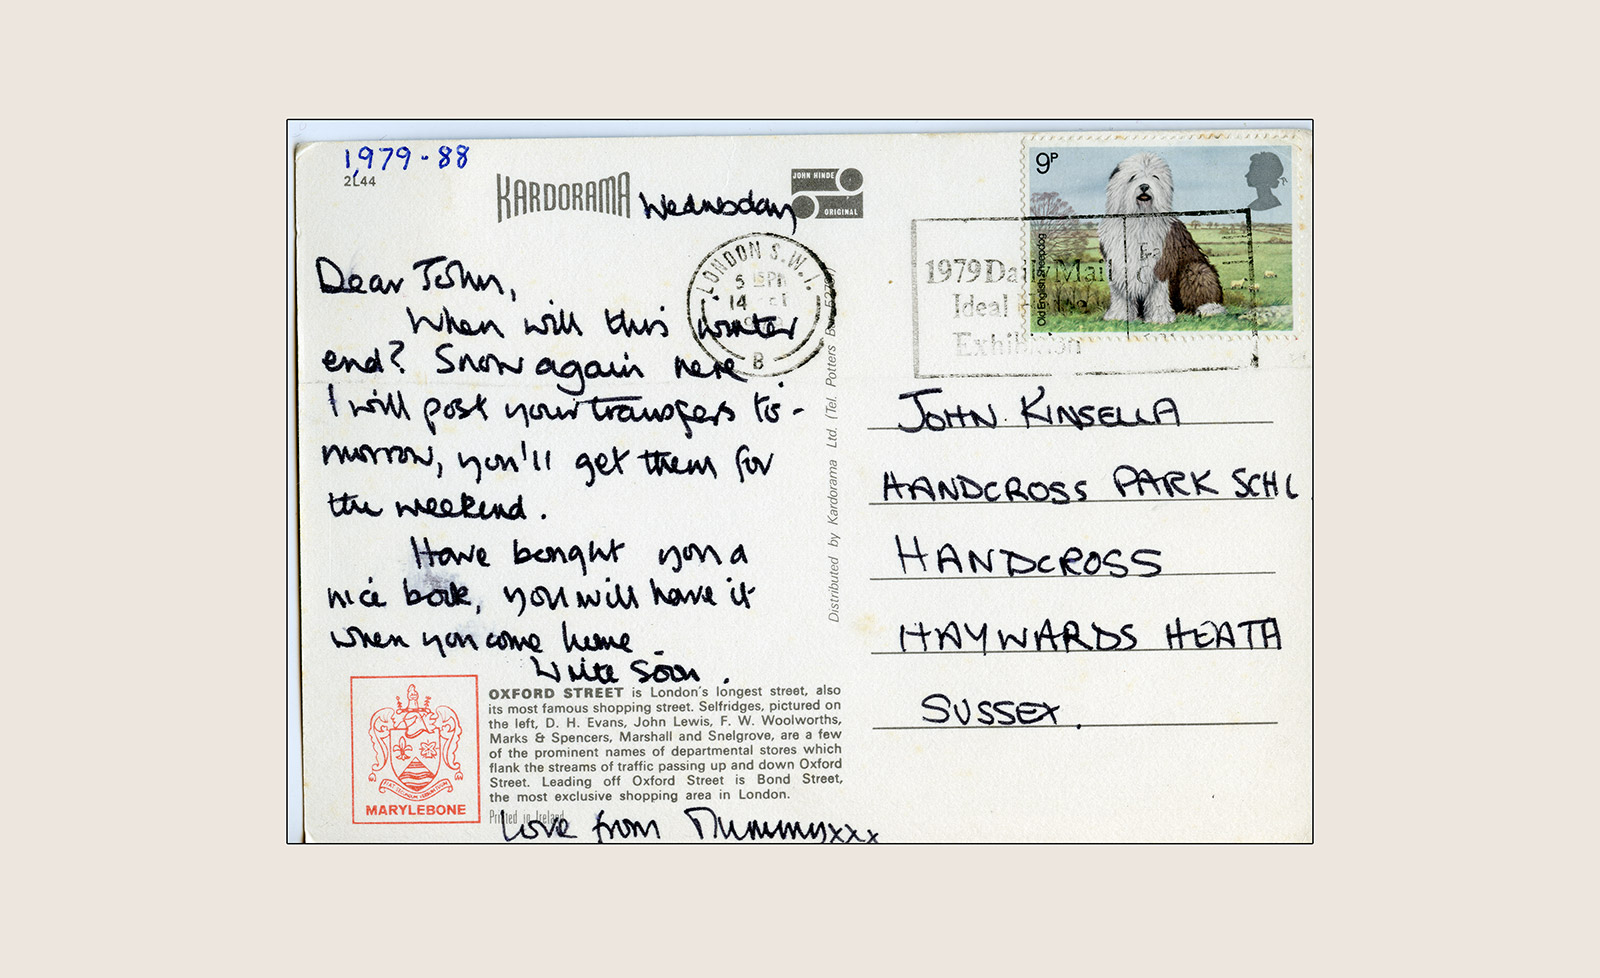 1979-88
2L44
KARDORAMA
JOHN HINDE
ORIGINAL
Wednesday
Dear John,
When will this winter
end? Snow again here
I will post your transfers to-
morrow, you'll get them for
the weekend.
Have bought you a
nice book, you will have it
when you come home.
Write soon.
MARYLEBONE
OXFORD STREET is London's longest street, also
its most famous shopping street. Selfridges, pictured on
the left, D. H. Evans, John Lewis, F. W. Woolworths,
Marks & Spencers, Marshall and Snelgrove, are a few
of the prominent names of departmental stores which
flank the streams of traffic passing up and down Oxford
Street. Leading off Oxford Street is Bond Street,
the most exclusive shopping area in London.
Printed in Ireland
Love from Mummyxxx
Distributed by Kardorama Ltd. (Tel. Potters Bar
LONDON S.W.1.
14
B
1979 Daily Mail
Ideal
Exhibition
9P
Old English Sheepdog
JOHN KINSELLA
HANDCROSS PARK SCHL
HANDCROSS
HAYWARDS HEATH
SUSSEX.